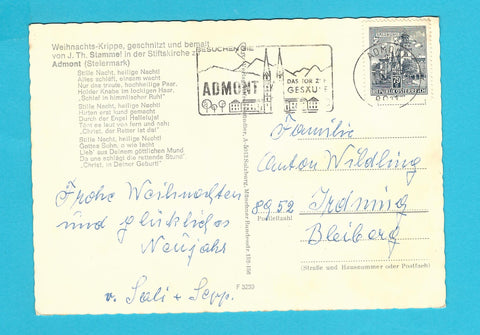 Weihnachts-Krippe, geschnitzt und bemalt
von J. Th. Stammel in der Stiftskirche zu
Admont (Steiermark)
Stille Nacht, heilige Nacht!
Alles schläft, einsam wacht
Nur das traute, hochheilige Paar.
Holder Knabe im lockigen Haar,
„Schlaf in himmlischer Ruh!“
Stille Nacht, heilige Nacht!
Hirten erst kund gemacht
Durch der Engel Halleluja!
Tönt es laut von fern und nah:
„Christ, der Retter ist da!“
Stille Nacht, heilige Nacht!
Gottes Sohn, o wie lacht
Lieb' aus Deinem göttlichen Mund
Da uns schlägt die rettende Stund'
„Christ, in Deiner Geburt!“
BESUCHEN SIE
ADMONT
DAS TOR ZUM
GESÄUSE
REPUBLIK ÖSTERREICH
Frohe Weihnachten
und glückliches
Neujahr
v. Sali + Sepp.
F 3233
Familie
Anton Wildling
8952 Irdning
(Postleitzahl)
Bleiberg
(Straße und Hausnummer oder Postfach)